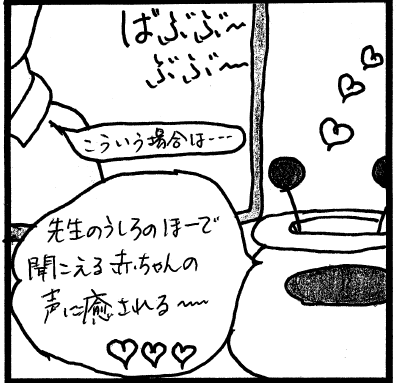 ばぶぶ〜
ぶぶ〜
こういう場合は---
先生のうしろのほーで
聞こえる赤ちゃんの
声に癒される〜〜